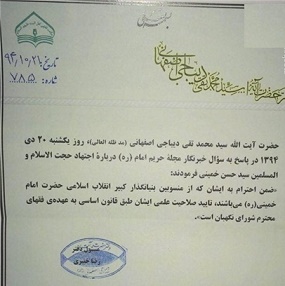 بسمه تعالی
تاریخ: ۹۴،۱۰،۲۱
شماره: ۷۸۵
حضرت آیت الله سید محمد تقی دیباجی اصفهانی
حضرت آیت الله سید محمد تقی دیباجی اصفهانی (مد ظله العالی)، روز یکشنبه ۲۰ دی
۱۳۹۴ در پاسخ به سؤال خبرنگار مجلهٔ حریم امام (ره) دربارهٔ اجتهاد حجت الاسلام و
المسلمین سید حسن خمینی فرمودند:
«ضمن احترام به ایشان که از منسوبین بنیانگذار کبیر انقلاب اسلامی حضرت امام
خمینی(ره) می‌باشند، تایید صلاحیت علمی ایشان طبق قانون اساسی به عهده‌ی فقهای
محترم شورای نگهبان است.»
مسئول دفتر
رضا خیری